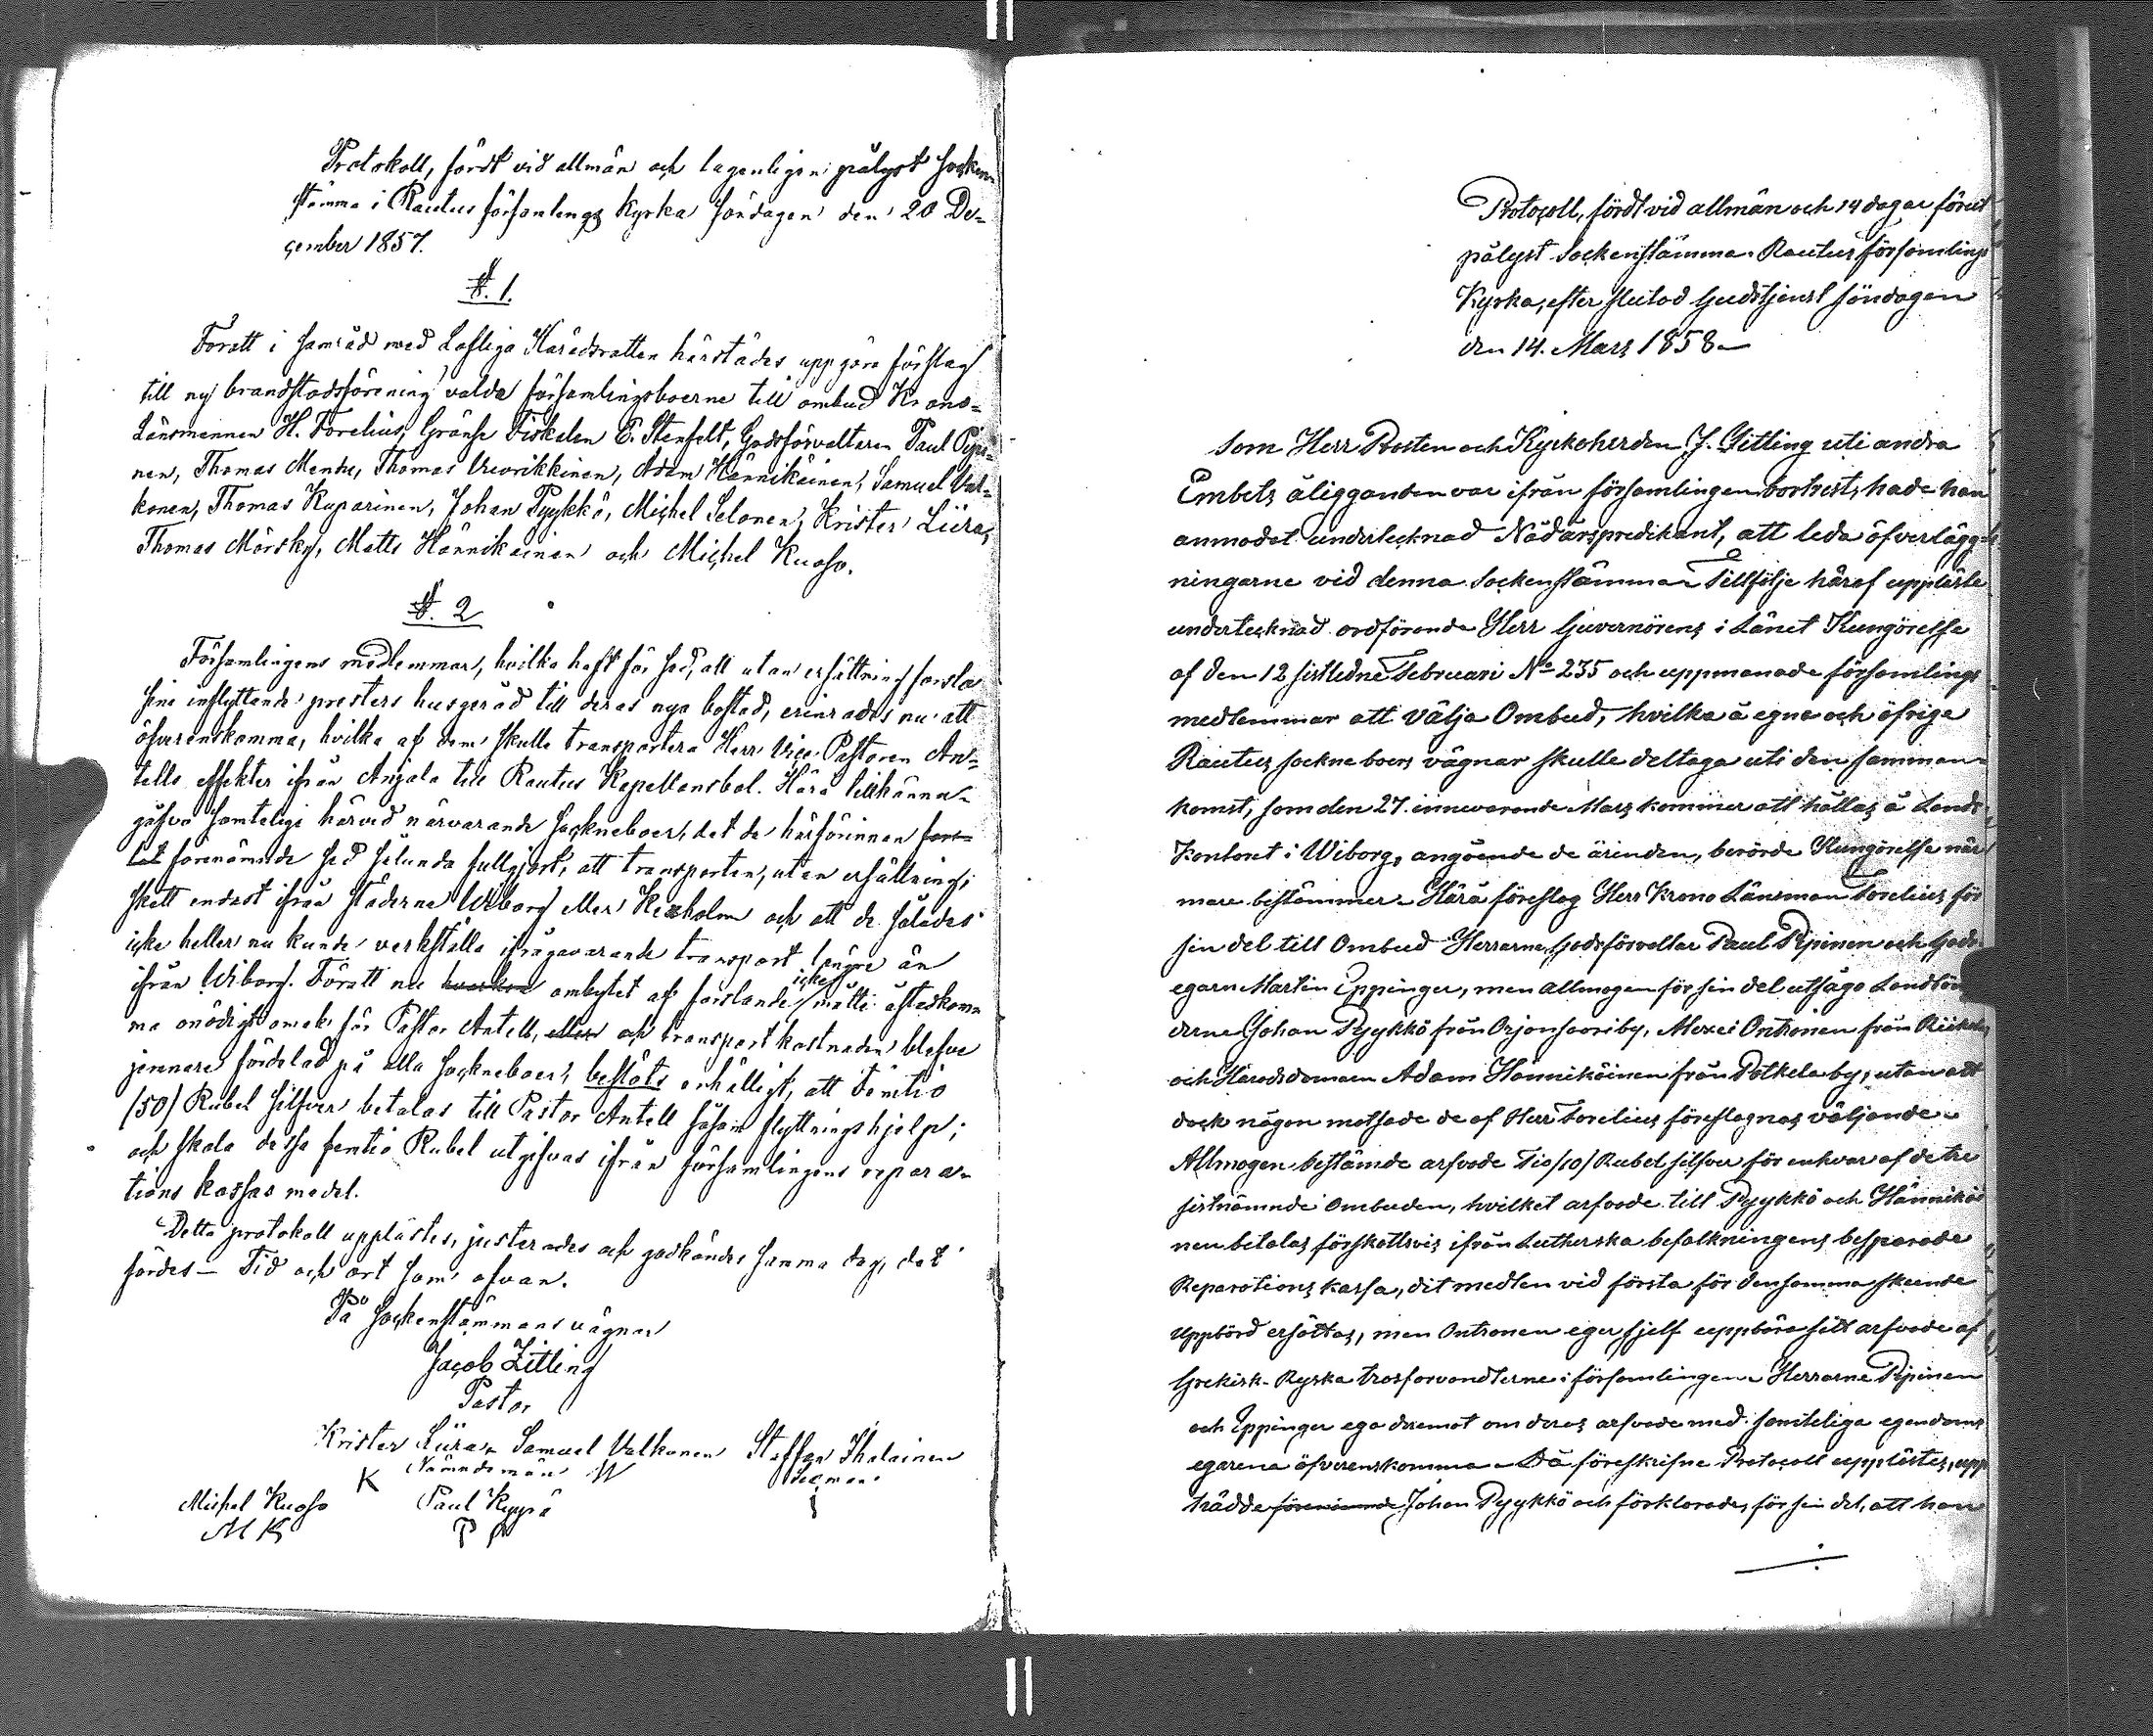 Protokoll, fördt vid allmän och lagenligen pålyst socken-
stämma i Rautus församlings kyrka söndagen den 20 De-
cember 1857.
§. 1.
Föratt i samråd med Lofliga Häradsrätten härstädes uppgöra förslag
till ny brandstodsförening valde församlingsboerne till ombud Krono-
Länsmannen H. Forelius, Gränse Fiskalen E. Stenfelt, Godsförvaltaren Paul Pipi-
nen, Thomas Mentu, Thomas Vuorikkinen, Adam Hännikäinen, Samuel Val-
konen, Thomas Kuparinen, Johan Pyykkö, Michel Selonen, Krister Liira,
Thomas Mörsky, Matts Hännikäinen och Michel Kuoso.
§. 2
Församlingens medlemmar, hvilka haft för sed, att utan ersättning forsla
sine inflyttande presters husgeråd till deras nya bostad, erinrades nu att
öfverenskomma, hvilka af dem skulle transportera Herr Vice Pastoren An-
tells effekter ifrån Anjala till Rautus Kapellansbol. Härå tillkänna-
gåfvo samtelige härvid närvarande sockneboer, det de härförinnan fors-
lat förenämnde sed sålunda fullgjort, att transporten, utan ersättning,
skett endast ifrån städerna Wiborg eller Kexholm och att de således
icke heller nu kunde verkställa ifrågavarande transport längre än
ifrån Wiborg. Föratt nu hvarken ombytet af forslande icke måtte åstadkom-
ma onödigt omak för Pastor Antell, eller och transportkostnaden blefve
jemnare fördelad på alla sockneboer, beslöts enhälligt, att Femtio
(50) Rubel silfver betalas till Pastor Antell såsom flyttningshjelp;
och skola dessa femtio Rubel utgifvas ifrån församlingens repara-
tions kassas medel.
Detta protokoll upplästes, justerades och godkändes samma dag, det
fördes – Tid och ort som ofvan.
På sockenstämmans vägnar
Jacob Zitting
Pastor
Krister Liira Samuel Valkonen Staffan Ihalainen
K Nämndemän W
Michel Kuoso Paul Kyyrö
M K P
Protocoll, fördt vid allmän och 14 dagar förut
pålyst Sockenstämma i Rautus församlings
Kyrka, efter slutad Gudstjenst söndagen
den 14. Mars 1858 –
Som Herr Prosten och Kyrkoherden J. Zitting uti andra
Embets åligganden var ifrån församlingen bortrest, hade han
anmodat undertecknad Nådårspredikant, att leda öfverlägg-
ningarne vid denna Sockenstämma – Tillfölje häraf uppläste
undertecknad ordförande Herr Guvernörens i Länet Kungörelse
af den 12 sistledne Februari No 235 och uppmanade församlings
medlemmar att välja Ombud, hvilka å egne och öfrige
Rautus sockneboers vägnar skulle deltaga uti den samman-
komst, som den 27. innevarande Mars kommer att hållas å Lands
Kontoret i Wiborg, angående de ärenden, berörde Kungörelse när-
mare bestämmer – Härå föreslog Herr Krono Länsman Forelius för
sin del till Ombud Herrarne Godsförvaltar Paul Pipinen och Gods-
egarn Martin Eppinger, men allmogen för sin del utsågo Landbön-
derne Johan Pyykkö från Orjansaari by, Alexei Ontronen från
och Häradsdomarn Adam Hännikäinen från Potkela by, utan att
dock någon motsade de af Herr Forelius föreslagnas väljande –
Allmogen bestämde arfvode Tio /10/ Rubel silfver för enhvar af de tre
sistnämnde ombuden, hvilket arfvode till Pyykkö och Hännikäi
nen betalas förskottsvis ifrån Lutherska befolkningens besparade
Reparations kassa, dit medlen vid första för densamma skeende
uppbörd ersättas, men Ontronen eger sjelf uppbära sitt arfvode af
Grekisk-Ryska trosförvandterne i församlingen – Herrarne Pipinen
och Eppinger ega deremot om deras arfvode med samteliga egendoms
egarena öfverenskomma – Då föreskrifne Protocoll upplästes, upp
trädde förenämnde Johan Pyykkö och förklarade, för sin del, att han